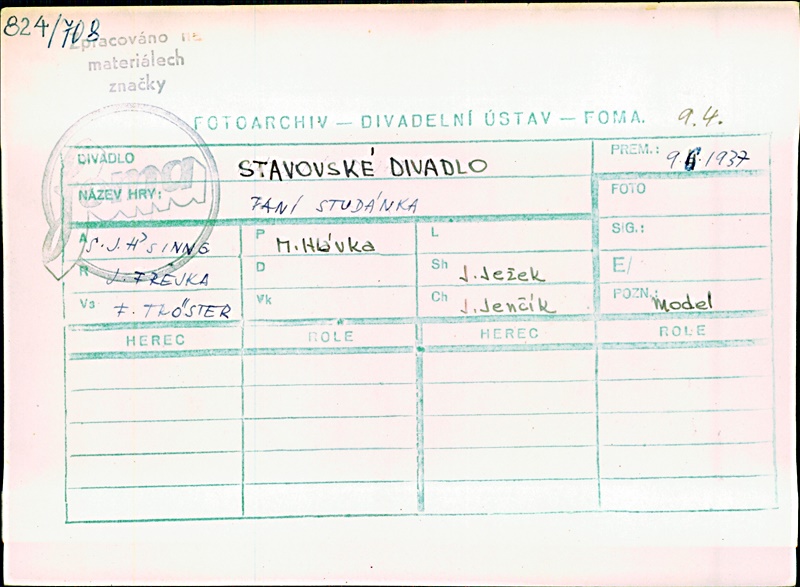 824/708
Zpracováno na
materiálech
značky
FOTOARCHIV — DIVADELNÍ ÚSTAV — FOMA.
9.4.
DIVADLO STAVOVSKÉ DIVADLO
PREM.: 9. 1937
NÁZEV HRY: PANÍ STUDÁNKA
FOTO
A S. J. H'SIUNG
P M. Hlávka
L
SIG.:
R J. FREJKA
D
Sh J. Ježek
E/
Vs F. TRÖSTER
Vk
Ch J. Jenčík
POZN.: Model
HEREC ROLE HEREC ROLE